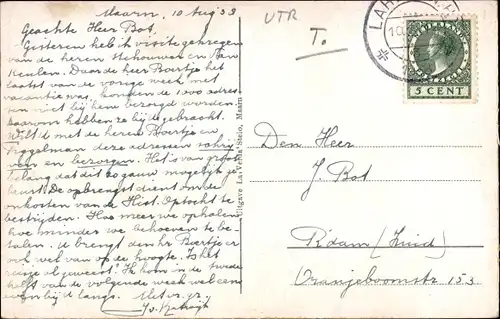 Maarn, 10 Aug 38
Geachte Heer Bot.
Gisteren heb ik visite gekregen
van de heren Stehouwer en Van
Keulen. Daar de heer Baartje het
laatst van de vorige week met
vacantie was, konden de 1000 adres
sen niet bij hem bezorgd worden.
Daarom hebben ze bij de gebracht.
Wilt U met de heren Baartje en
Piggelman deze adressen schrij
ven en bezorgen. Het is van groot
belang dat dit zo gauw mogelijk ge
beurt. De opbrengst dient om de
onkosten van de Hist. Optocht te
bestrijden. Hoe meer we ophalen
hoe minder we behoeven te be-
talen. U brengt den hr Baartje er
ook wel van op de hoogte. Is het
reisje al geweest? Ik kom in de tweede
helft van de volgende week wel eens
even bij U langs. Met vr. gr.
UTR
T.
LA
10.
5 CENT
Uitgave La Verda Stelo, Maarn
Den Heer
J. Bot
R'dam (Zuid)
Oranjeboomstr 153